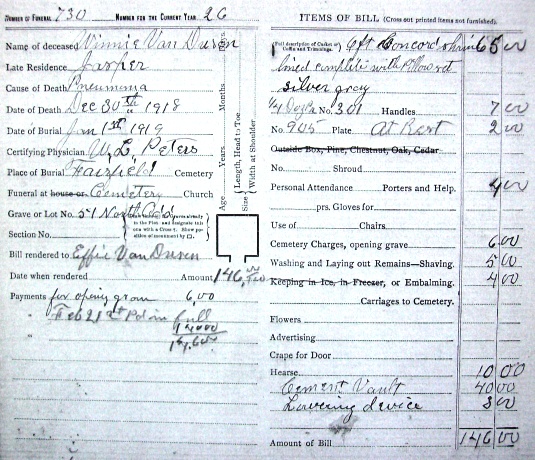 NUMBER OF FUNERAL 730 NUMBER FOR THE CURRENT YEAR 26
Name of deceased Winnie Van Dusen
Late Residence Jasper
Cause of Death Pneumonia
Date of Death Dec 30th 1918
Date of Burial Jan 1st 1919
Certifying Physician W. L. Peters
Place of Burial Fairfield Cemetery
Funeral at house or Cemetery Church
Grave or Lot No. 51 North
Section No.
Bill rendered to Effie Van Dusen
Date when rendered Amount 146.00
Payments for opening 6,00
" Feb 21st in full
14000
146.00
Years. Months. Days.
Age
Size { Length, Head to Toe
Width at Shoulder
ITEMS OF BILL (Cross out printed items not furnished.)
(Full description of Casket or Coffin and Trimmings. 6ft Concord 65 00
lined complete with Pillow
silver gray
No. 301 Handles 7 00
No 905 Plate At Rest 2 00
Outside Box, Pine, Chestnut, Oak, Cedar
No. Shroud
Personal Attendance Porters and Help. 4 00
prs. Gloves for
Use of Chairs
Cemetery Charges, opening grave 6 00
Washing and Laying out Remains—Shaving. 5 00
Keeping in Ice, in Freezer, or Embalming. 4 00
Carriages to Cemetery.
Flowers
Advertising
Crape for Door
Hearse 10 00
Cement Vault 40 00
Lowering device 3 00
Amount of Bill 146 00